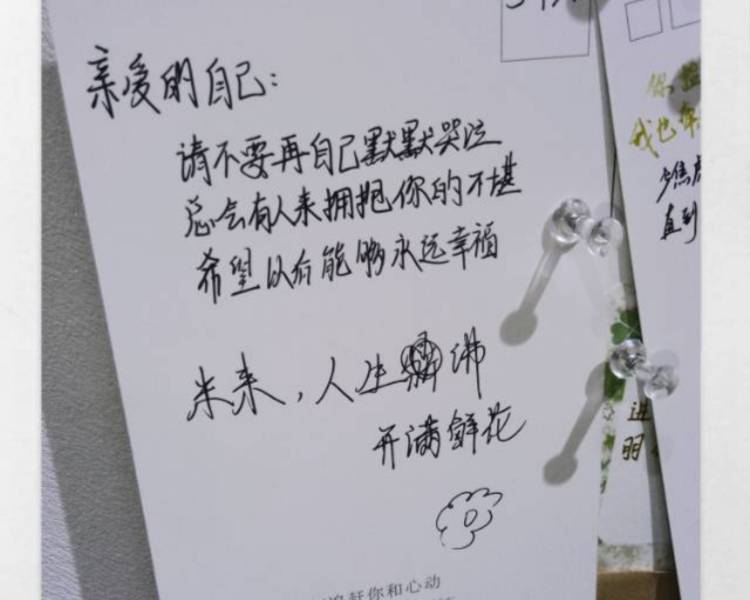 亲爱的自己:
请不要再自己默默哭泣
总会有人来拥抱你的不堪
希望以后能够永远幸福
未来,人生 沸
开满鲜花
你和心动
我也
焦
直到
进
明